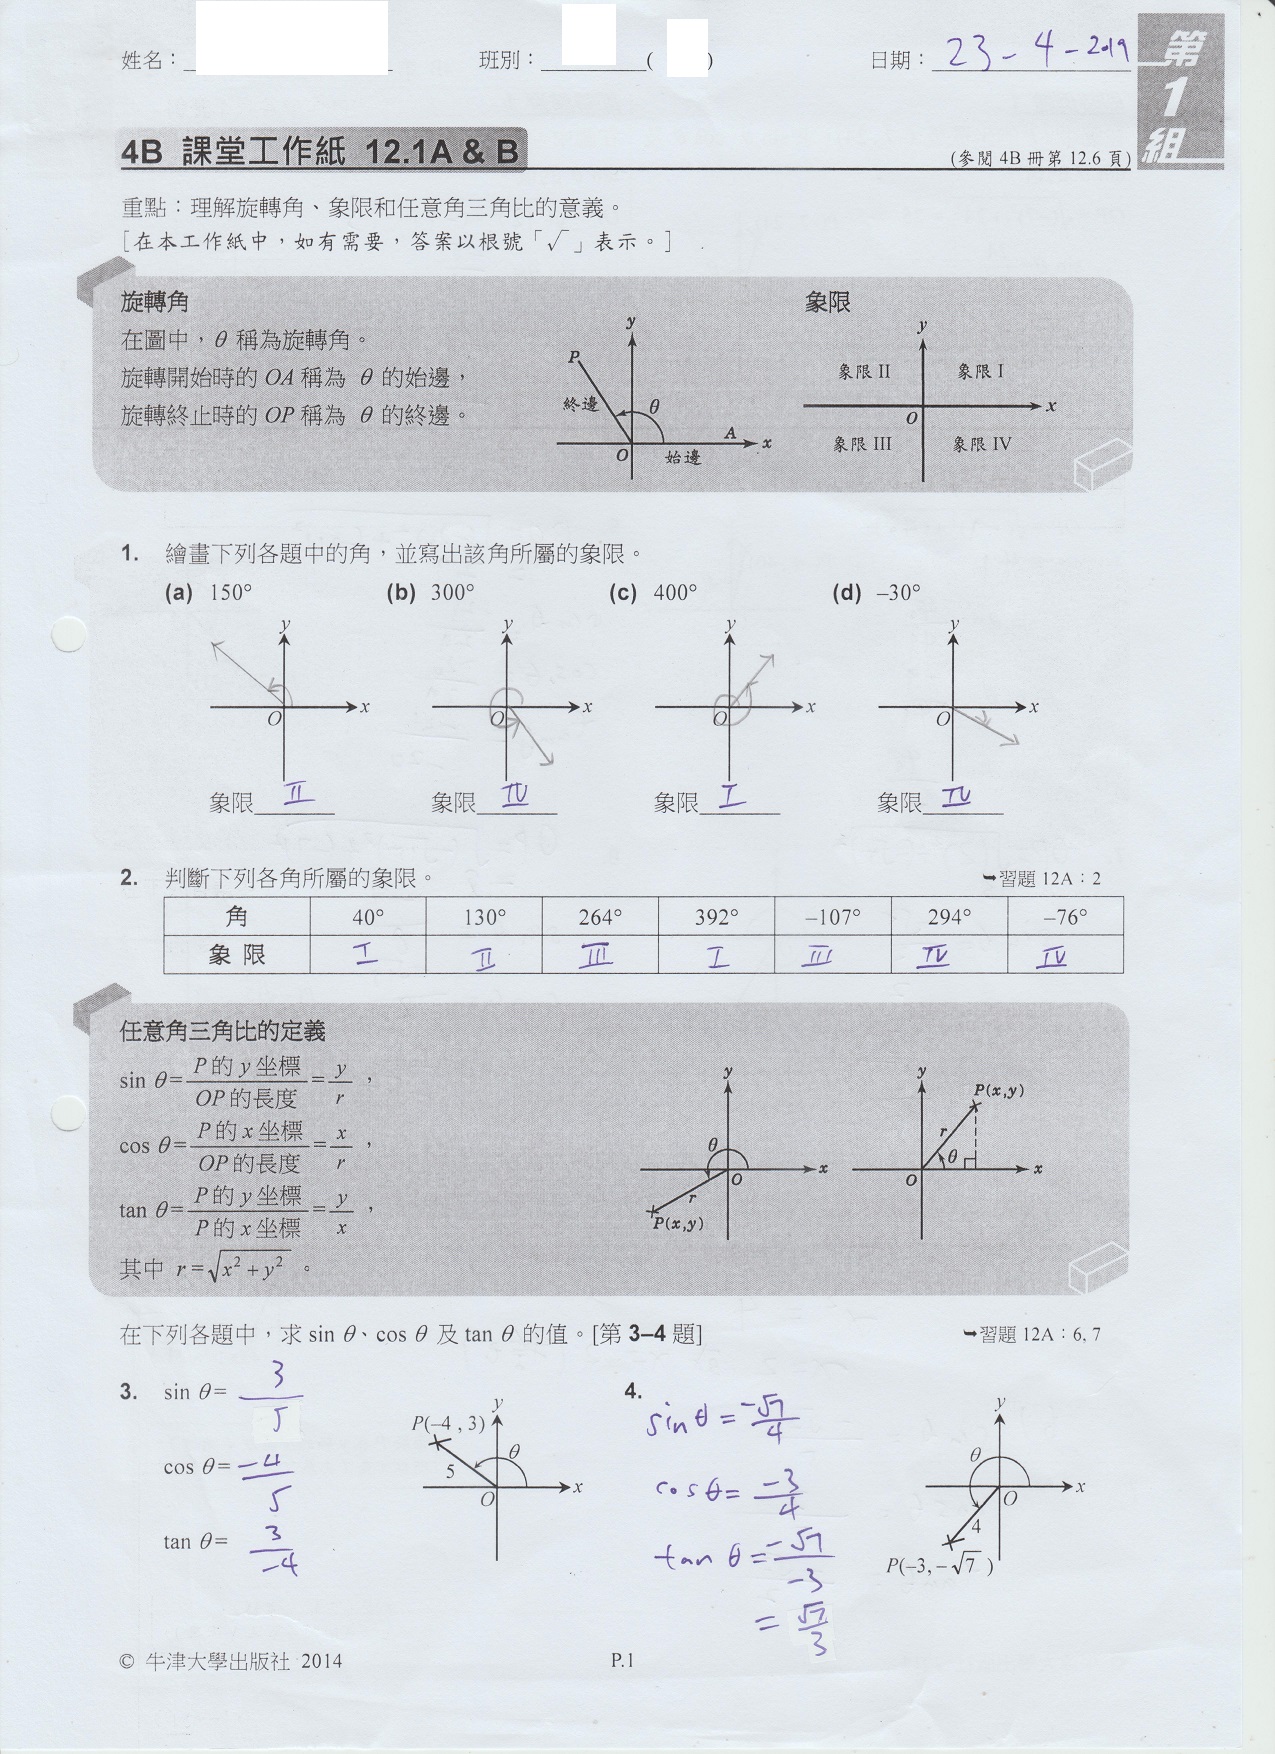 姓名：
班別： ( )
日期： 23-4-2019
第1組
4B 課堂工作紙 12.1A & B
(參閱 4B 冊第 12.6 頁)
重點：理解旋轉角、象限和任意角三角比的意義。
[在本工作紙中，如有需要，答案以根號「√」表示。]
旋轉角
在圖中，θ 稱為旋轉角。
旋轉開始時的 OA 稱為 θ 的始邊，
旋轉終止時的 OP 稱為 θ 的終邊。
y
P
終邊
θ
A
x
O
始邊
象限
y
象限 II 象限 I
O x
象限 III 象限 IV
1. 繪畫下列各題中的角，並寫出該角所屬的象限。
(a) 150° (b) 300° (c) 400° (d) –30°
y y y y
O x O x O x O x
象限 II 象限 IV 象限 I 象限 IV
2. 判斷下列各角所屬的象限。 ➥習題 12A：2
角 40° 130° 264° 392° –107° 294° –76°
象限 I II III I III IV IV
任意角三角比的定義
sin θ = P 的 y 坐標 / OP 的長度 = y / r ，
cos θ = P 的 x 坐標 / OP 的長度 = x / r ，
tan θ = P 的 y 坐標 / P 的 x 坐標 = y / x ，
其中 r = √x² + y² 。
y
θ
O x
r
P(x,y)
y
P(x,y)
r
θ
O x
在下列各題中，求 sin θ、cos θ 及 tan θ 的值。[第 3–4 題] ➥習題 12A：6, 7
3. sin θ = 3 / 5
cos θ = -4 / 5
tan θ = 3 / -4
y
P(–4 , 3)
θ
5
O x
4. sin θ = -√7 / 4
cos θ = -3 / 4
tan θ = -√7 / -3
= √7 / 3
y
θ
O x
4
P(–3, –√7 )
© 牛津大學出版社 2014
P.1